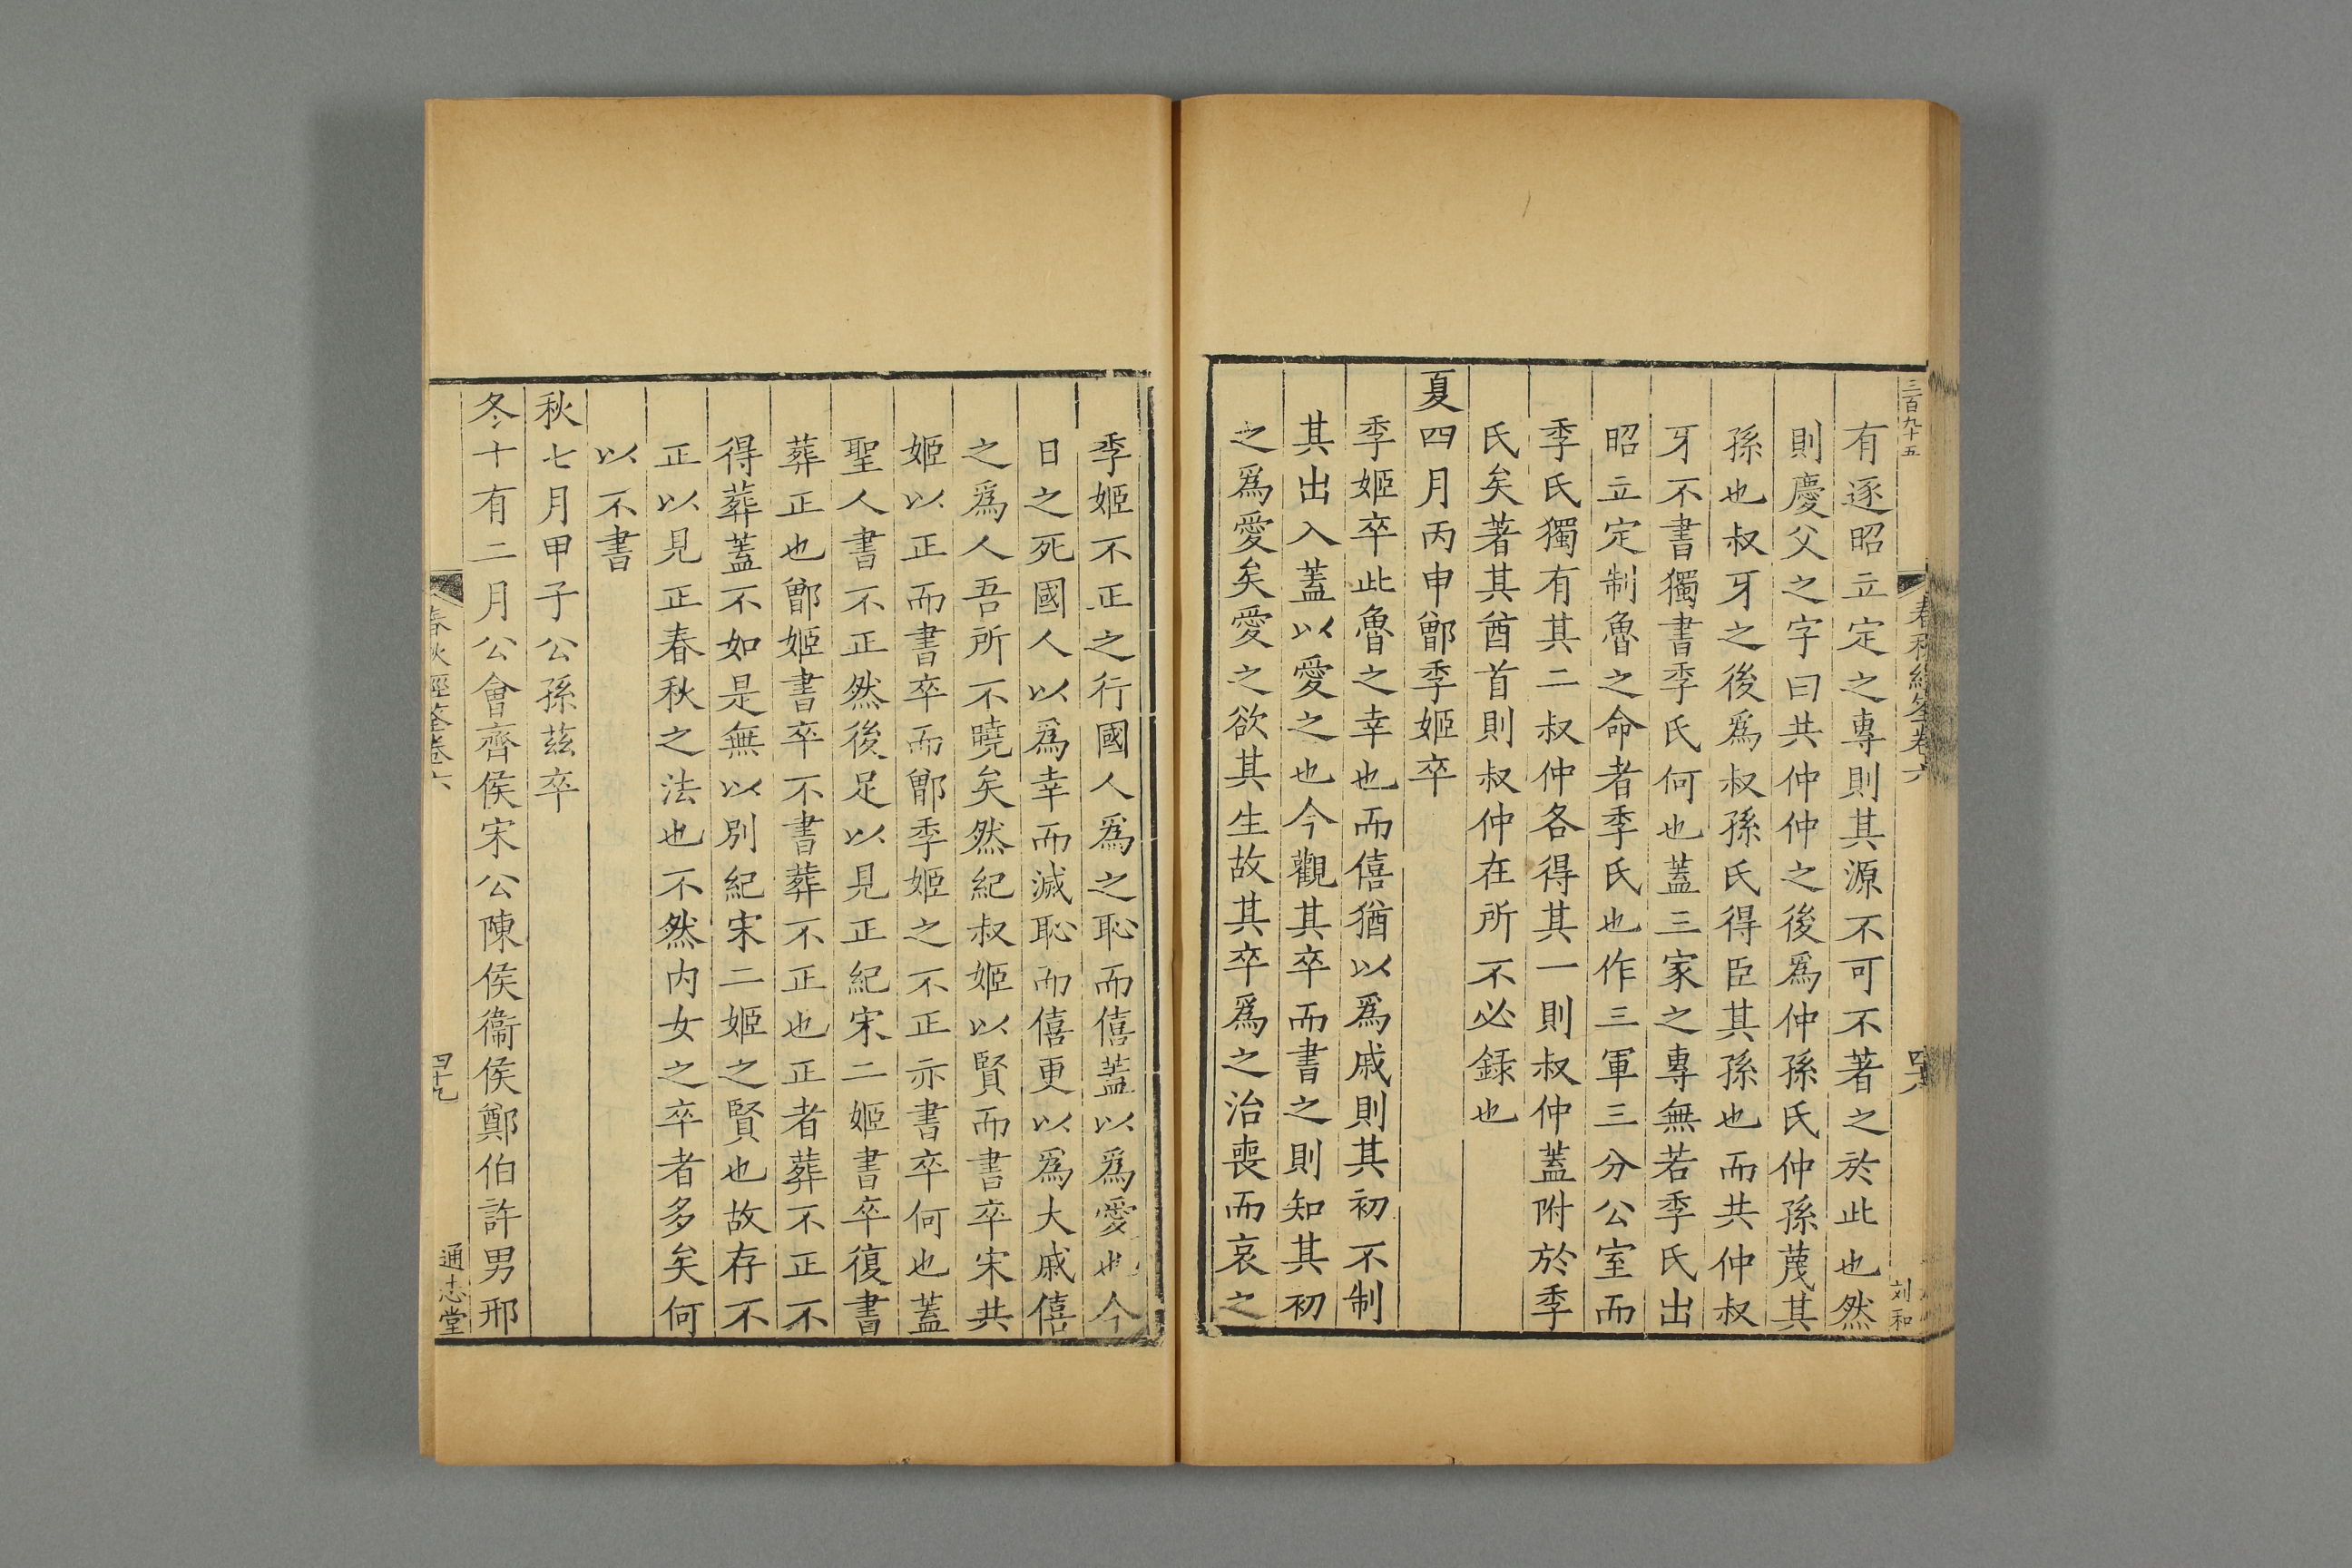 三百九十五
春秋經筌卷六
刘和
有逐昭立定之專則其源不可不著之於此也然
則慶父之字曰共仲仲之後爲仲孫氏仲孫蔑其
孫也叔牙之後爲叔孫氏得臣其孫也而共仲叔
牙不書獨書季氏何也蓋三家之專無若季氏出
昭立定制魯之命者季氏也作三軍三分公室而
季氏獨有其二叔仲各得其一則叔仲蓋附於季
氏矣著其酋首則叔仲在所不必録也
夏四月丙申鄫季姬卒
季姬卒此魯之幸也而僖猶以爲戚則其初不制
其出入蓋以愛之也今觀其卒而書之則知其初
之爲愛矣愛之欲其生故其卒爲之治喪而哀之
季姬不正之行國人爲之恥而僖蓋以爲愛也今
日之死國人以爲幸而滅恥而僖更以爲大戚僖
之爲人吾所不曉矣然紀叔姬以賢而書卒宋共
姬以正而書卒而鄫季姬之不正亦書卒何也蓋
聖人書不正然後足以見正紀宋二姬書卒復書
葬正也鄫姬書卒不書葬不正也正者葬不正不
得葬蓋不如是無以別紀宋二姬之賢也故存不
正以見正春秋之法也不然内女之卒者多矣何
以不書
秋七月甲子公孫茲卒
冬十有二月公會齊侯宋公陳侯衞侯鄭伯許男邢
春秋經筌卷六
四十九
通志堂